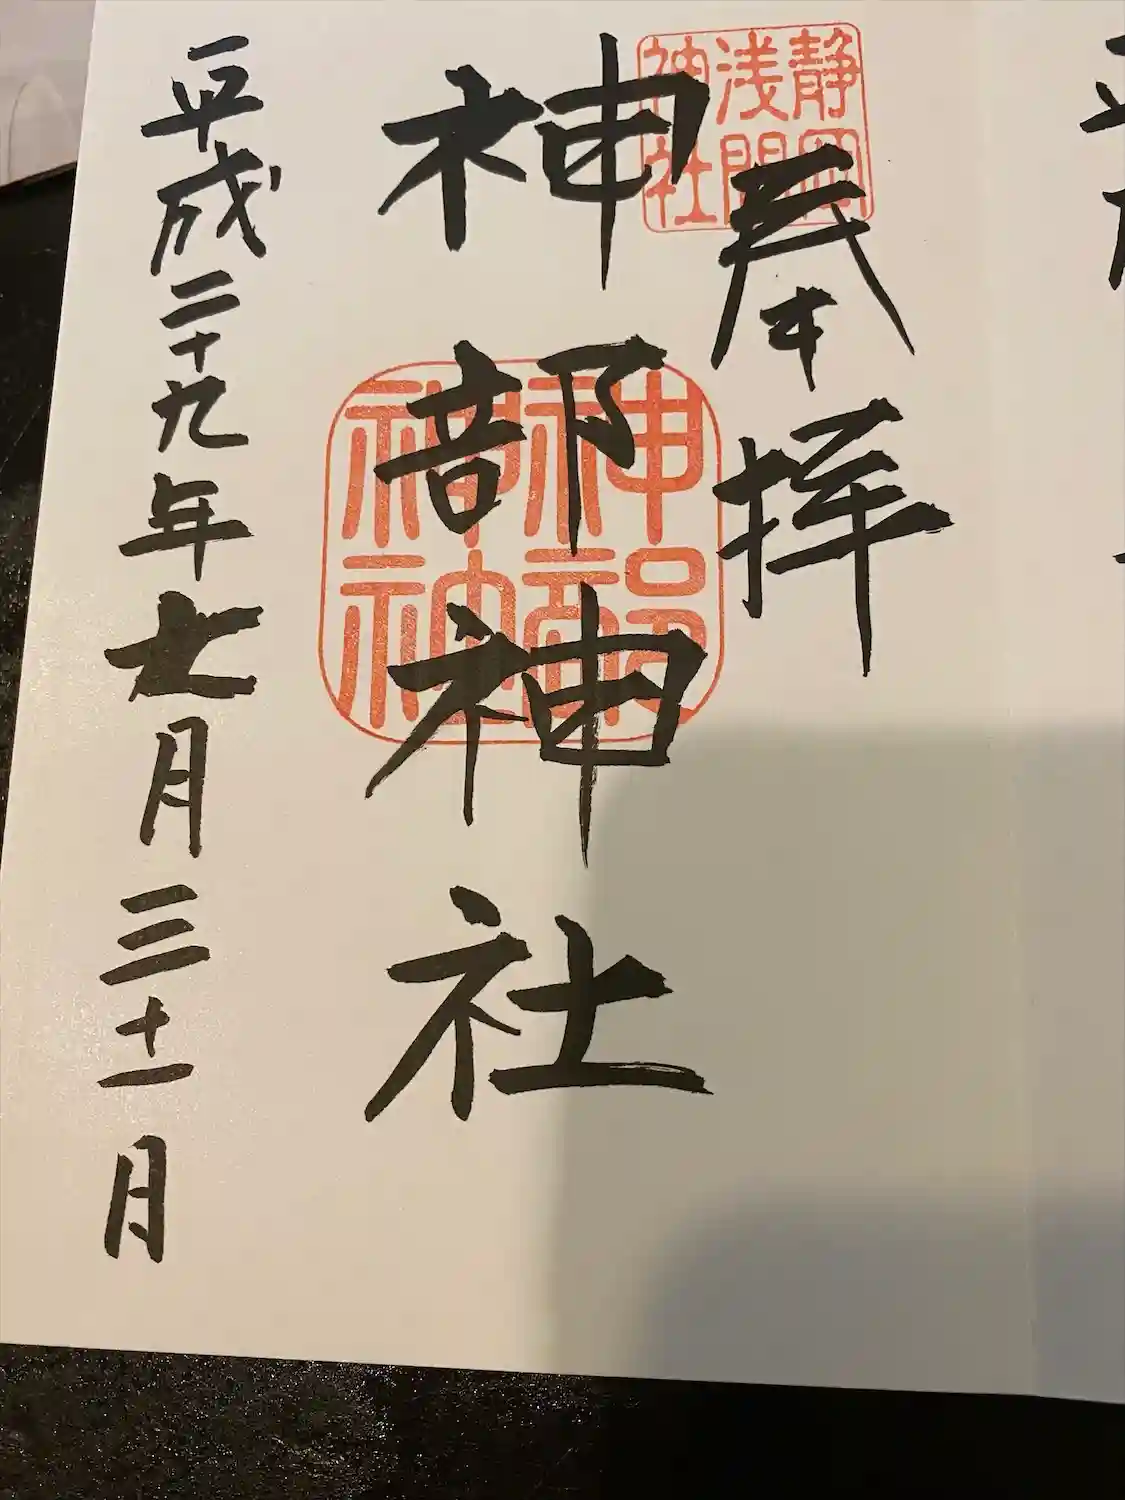 奉拝
静岡
浅間
神社
神部神社
神部
神社
平成二十九年七月三十一日